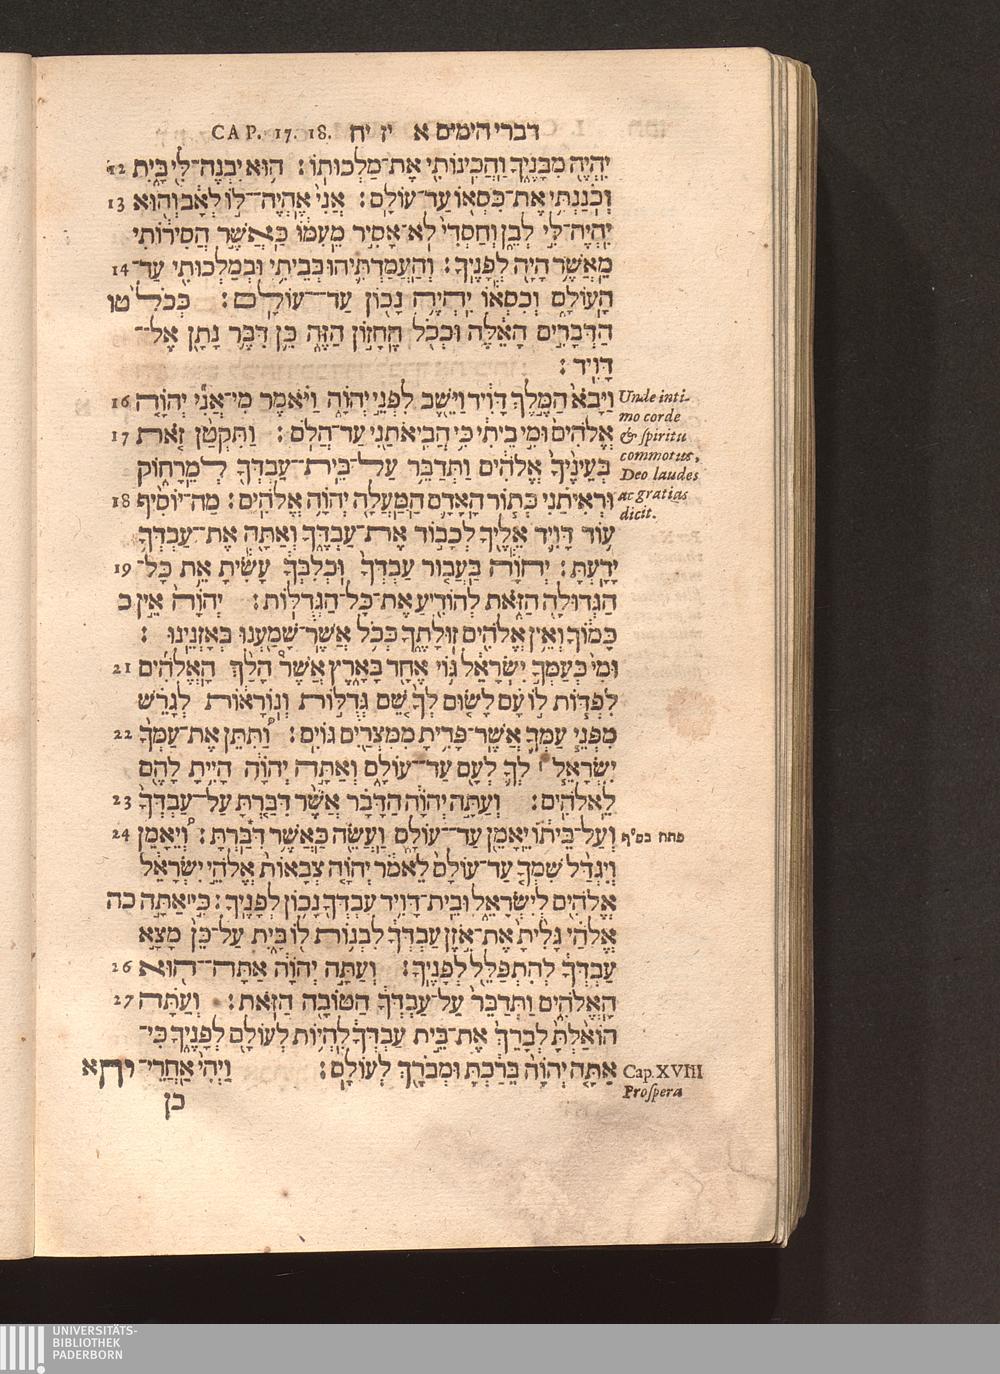 דברי הימים א יז יח CAP. 17. 18.
יִהְיֶה מִבָּנֶיךָ וַהֲכִינוֹתִי אֶת־מַלְכוּתוֹ: הוּא יִבְנֶה־לִּי בָּיִת 12
וְכֹנַנְתִּי אֶת־כִּסְאוֹ עַד־עוֹלָם: אֲנִי אֶהְיֶה־לּוֹ לְאָב וְהוּא 13
יִהְיֶה־לִּי לְבֵן וְחַסְדִּי לֹא־אָסִיר מֵעִמּוֹ כַּאֲשֶׁר הֲסִירוֹתִי
מֵאֲשֶׁר הָיָה לְפָנֶיךָ: וְהַעֲמַדְתִּיהוּ בְּבֵיתִי וּבְמַלְכוּתִי עַד־ 14
הָעוֹלָם וְכִסְאוֹ יִהְיֶה נָכוֹן עַד־עוֹלָם: כְּכֹל טו
הַדְּבָרִים הָאֵלֶּה וּכְכֹל הֶחָזוֹן הַזֶּה כֵּן דִּבֶּר נָתָן אֶל־
דָּוִיד:
וַיָּבֹא הַמֶּלֶךְ דָּוִיד וַיֵּשֶׁב לִפְנֵי יְהוָה וַיֹּאמֶר מִי־אֲנִי יְהוָה 16
אֱלֹהִים וּמִי בֵיתִי כִּי הֲבִיאֹתַנִי עַד־הֲלֹם: וַתִּקְטַן זֹאת 17
בְּעֵינֶיךָ אֱלֹהִים וַתְּדַבֵּר עַל־בֵּית־עַבְדְּךָ לְמֵרָחוֹק
וּרְאִיתַנִי כְּתוֹר הָאָדָם הַמַּעֲלָה יְהוָה אֱלֹהִים: מַה־יּוֹסִיף 18
עוֹד דָּוִיד אֵלֶיךָ לְכָבוֹד אֶת־עַבְדֶּךָ וְאַתָּה אֶת־עַבְדְּךָ
יָדָעְתָּ: יְהוָה בַּעֲבוּר עַבְדְּךָ וּכְלִבְּךָ עָשִׂיתָ אֵת כָּל־ 19
הַגְּדוּלָּה הַזֹּאת לְהוֹדִיעַ אֶת־כָּל־הַגְּדֻלּוֹת: יְהוָה אֵין כ
כָּמוֹךָ וְאֵין אֱלֹהִים זוּלָתֶךָ בְּכֹל אֲשֶׁר־שָׁמַעְנוּ בְּאָזְנֵינוּ:
וּמִי כְּעַמְּךָ יִשְׂרָאֵל גּוֹי אֶחָד בָּאָרֶץ אֲשֶׁר הָלַךְ הָאֱלֹהִים 21
לִפְדּוֹת לוֹ עָם לָשׂוּם לְךָ שֵׁם גְּדֻלּוֹת וְנוֹרָאוֹת לְגָרֵשׁ
מִפְּנֵי עַמְּךָ אֲשֶׁר־פָּדִיתָ מִמִּצְרַיִם גּוֹיִם: וַתִּתֵּן אֶת־עַמְּךָ 22
יִשְׂרָאֵל לְךָ לְעָם עַד־עוֹלָם וְאַתָּה יְהוָה הָיִיתָ לָהֶם
לֵאלֹהִים: וְעַתָּה יְהוָה הַדָּבָר אֲשֶׁר דִּבַּרְתָּ עַל־עַבְדְּךָ 23
וְעַל־בֵּיתוֹ יֵאָמֵן עַד־עוֹלָם וַעֲשֵׂה כַּאֲשֶׁר דִּבַּרְתָּ: וְיֵאָמֵן 24
וְיִגְדַּל שִׁמְךָ עַד־עוֹלָם לֵאמֹר יְהוָה צְבָאוֹת אֱלֹהֵי יִשְׂרָאֵל
אֱלֹהִים לְיִשְׂרָאֵל וּבֵית־דָּוִיד עַבְדְּךָ נָכוֹן לְפָנֶיךָ: כִּי אַתָּה כה
אֱלֹהַי גָּלִיתָ אֶת־אֹזֶן עַבְדְּךָ לִבְנוֹת לוֹ בָּיִת עַל־כֵּן מָצָא
עַבְדְּךָ לְהִתְפַּלֵּל לְפָנֶיךָ: וְעַתָּה יְהוָה אַתָּה־הוּא 26
הָאֱלֹהִים וַתְּדַבֵּר עַל־עַבְדְּךָ הַטּוֹבָה הַזֹּאת: וְעַתָּה 27
הוֹאַלְתָּ לְבָרֵךְ אֶת־בֵּית עַבְדְּךָ לִהְיוֹת לְעוֹלָם לְפָנֶיךָ כִּי־
אַתָּה יְהוָה בֵּרַכְתָּ וּמְבֹרָךְ לְעוֹלָם: וַיְהִי אַחֲרֵי־ יח א
כן
Unde inti-
mo corde
& spiritu
commotus,
Deo laudes
ac gratias
dicit.
פתח בס״ף
Cap. XVIII
Prospera
UNIVERSITÄTS-
BIBLIOTHEK
PADERBORN